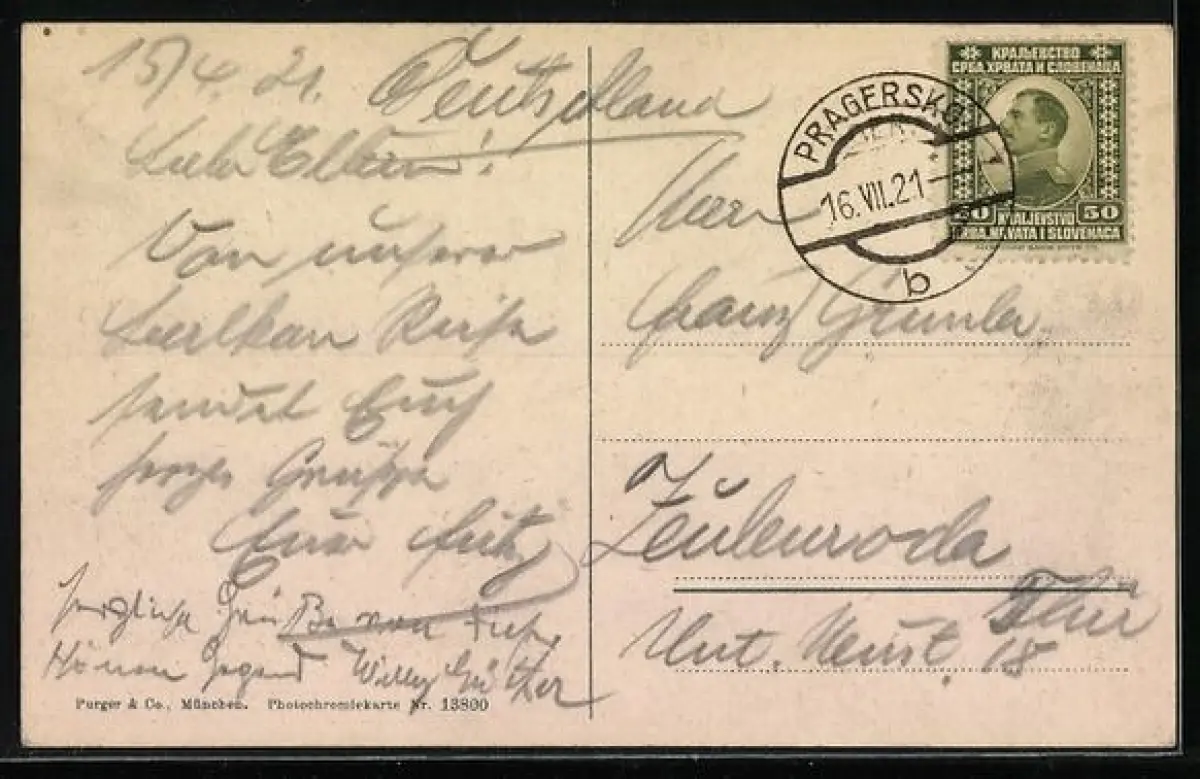 15/4. 21.
Deutschland
Liebe Eltern!
Von unserer
Balkan Reise
sendet Euch
herzl. Grüße
Euer Fritz
herzliche Grüße von dieser
schönen Gegend Willy
Purger & Co., München. Photochromiekarte Nr. 13800
КРАЉЕВСТВО
СРБА, ХРВАТА И СЛОВЕНАЦА
50 KRALJEVSTVO 50
SRBA, HRVATA I SLOVENACA
PRAGERSKO
16.VII.21
b
Herrn
Franz Grimler
Zeulenroda
Thür
Unt. 18